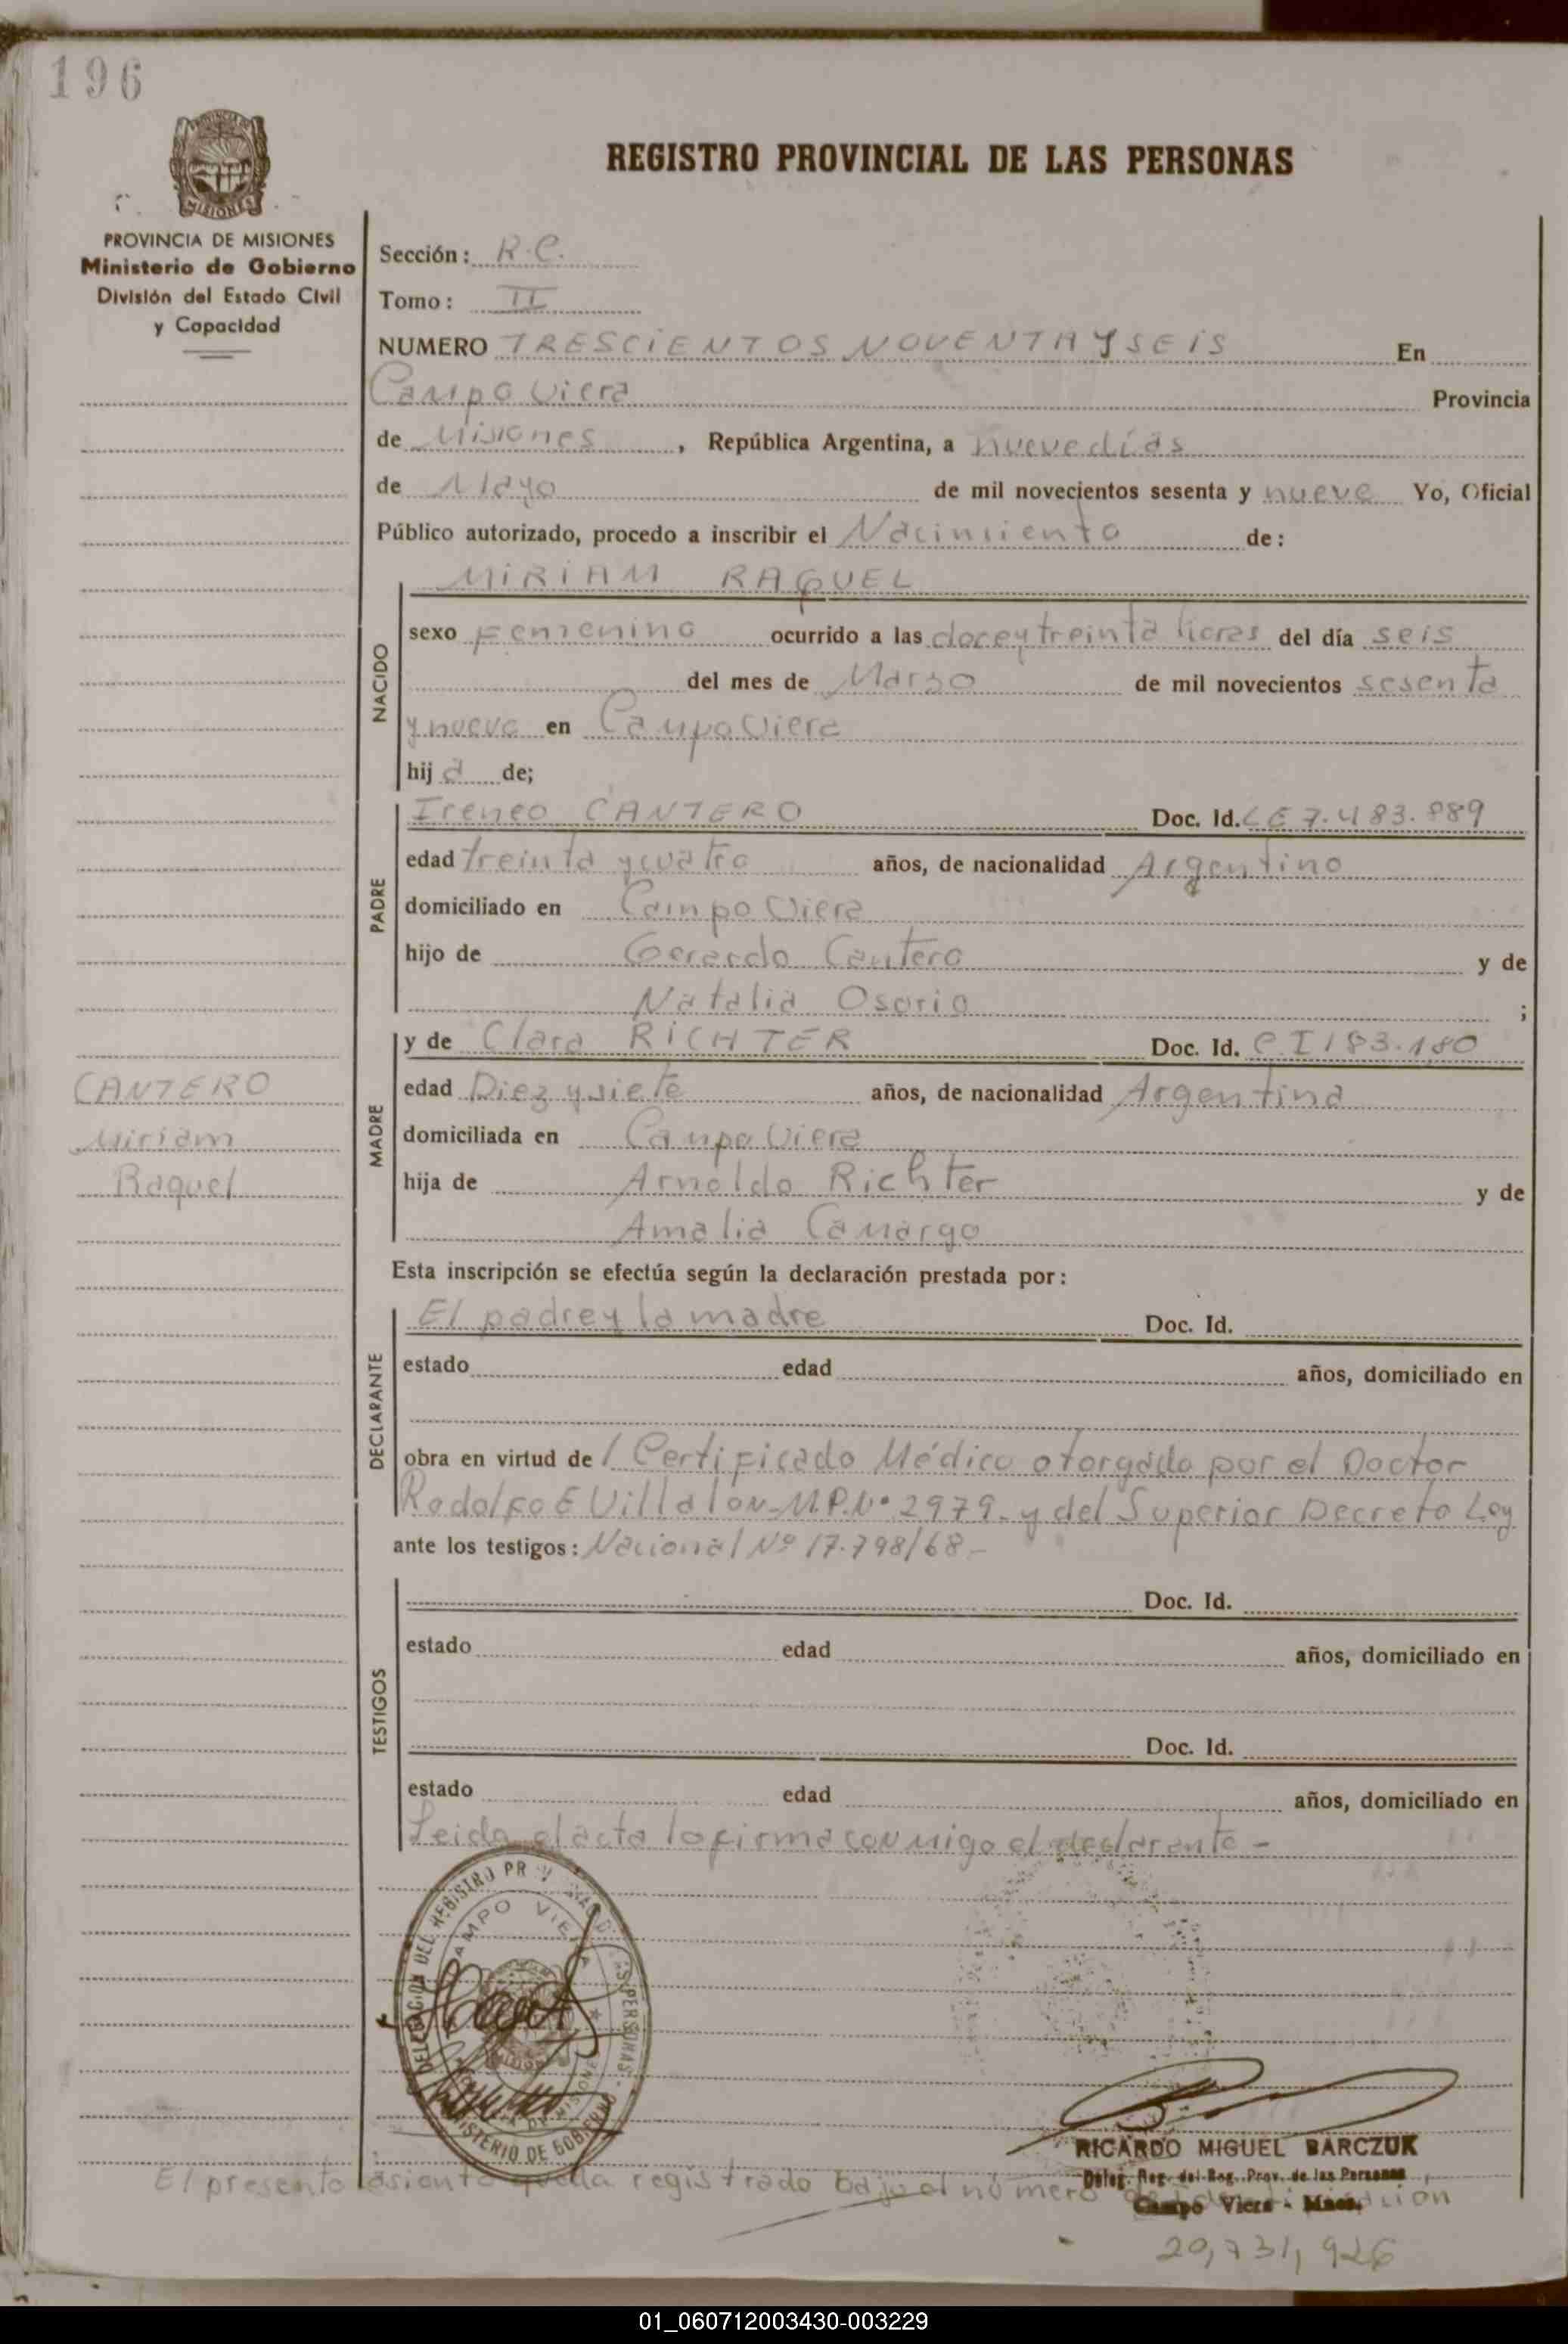 196
PROVINCIA DE
MISIONES
REGISTRO PROVINCIAL DE LAS PERSONAS
PROVINCIA DE MISIONES
Ministerio de Gobierno
División del Estado Civil
y Capacidad
Sección: R.C.
Tomo: II
NUMERO TRESCIENTOS NOVENTA Y SEIS En
Campo Viera Provincia
de Misiones, República Argentina, a nueve días
de Mayo de mil novecientos sesenta y nueve Yo, Oficial
Público autorizado, procedo a inscribir el Nacimiento de:
MIRIAM RAQUEL
NACIDO
sexo Femenino ocurrido a las doce y treinta horas del día seis
del mes de Marzo de mil novecientos sesenta
y nueve en Campo Viera
hija de;
Ireneo CANTERO Doc. Id. LE 7.483.889
PADRE
edad treinta y cuatro años, de nacionalidad Argentino
domiciliado en Campo Viera
hijo de Gerardo Cantero y de
Natalia Osorio ;
y de Clara RICHTER Doc. Id. C.I 183.180
MADRE
edad Diez y siete años, de nacionalidad Argentina
domiciliada en Campo Viera
hija de Arnoldo Richter y de
Amalia Camargo
CANTERO
Miriam
Raquel
Esta inscripción se efectúa según la declaración prestada por:
El padre y la madre Doc. Id.
DECLARANTE
estado edad años, domiciliado en
obra en virtud de 1 Certificado Médico otorgado por el Doctor
Rodolfo E Villalon-M.P.Nº 2979- y del Superior Decreto Ley
ante los testigos: Nacional Nº 17.798/68-
TESTIGOS
Doc. Id.
estado edad años, domiciliado en
Doc. Id.
estado edad años, domiciliado en
Leida el acta la firma conmigo el declarante -
DELEGACION DEL REGISTRO PERSONAS
CAMPO VIERA
MISIONES
MINISTERIO DE GOBIERNO
RICARDO MIGUEL BARCZUK
Deleg. Reg. del Reg. Prov. de las Personas
Campo Viera - Mnes.
El presente asiento queda registrado bajo el número
20,731,926
01_060712003430-003229